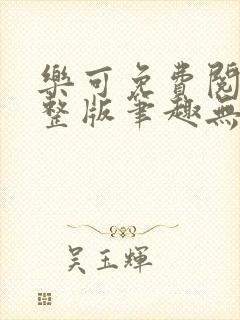 樂可免費閱
整版筆趣無
吳玉輝